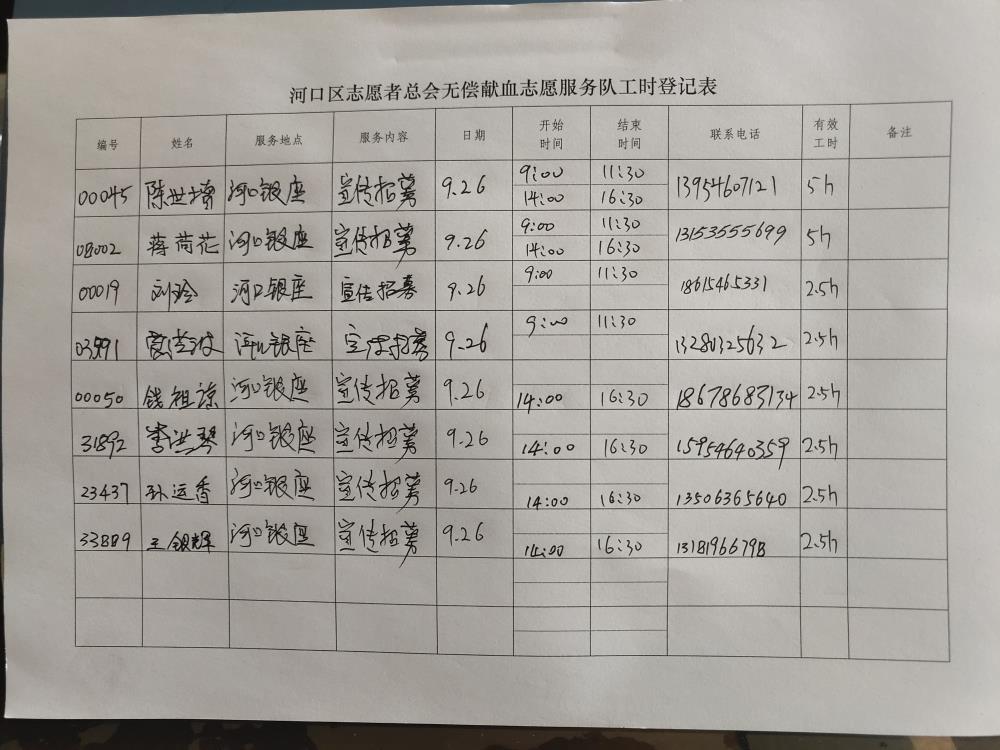 河口区志愿者总会无偿献血志愿服务队工时登记表
编号 姓名 服务地点 服务内容 日期 开始时间 结束时间 联系电话 有效工时 备注
00045 陈世增 河口银座 宣传招募 9.26 9:00 11:30 13954607121 5h
14:00 16:30
08002 蒋荷花 河口银座 宣传招募 9.26 9:00 11:30 13153555699 5h
14:00 16:30
00019 刘玲 河口银座 宣传招募 9.26 9:00 11:30 18615465331 2.5h
河口银座 宣传招募 9.26 9:00 11:30 13280325632 2.5h
00050 钱祖谅 河口银座 宣传招募 9.26 14:00 16:30 18678683134 2.5h
31892 李洪琴 河口银座 宣传招募 9.26 14:00 16:30 15954640359 2.5h
23437 孙运香 河口银座 宣传招募 9.26 14:00 16:30 13506365640 2.5h
33889 王银辉 河口银座 宣传招募 9.26 14:00 16:30 2.5h